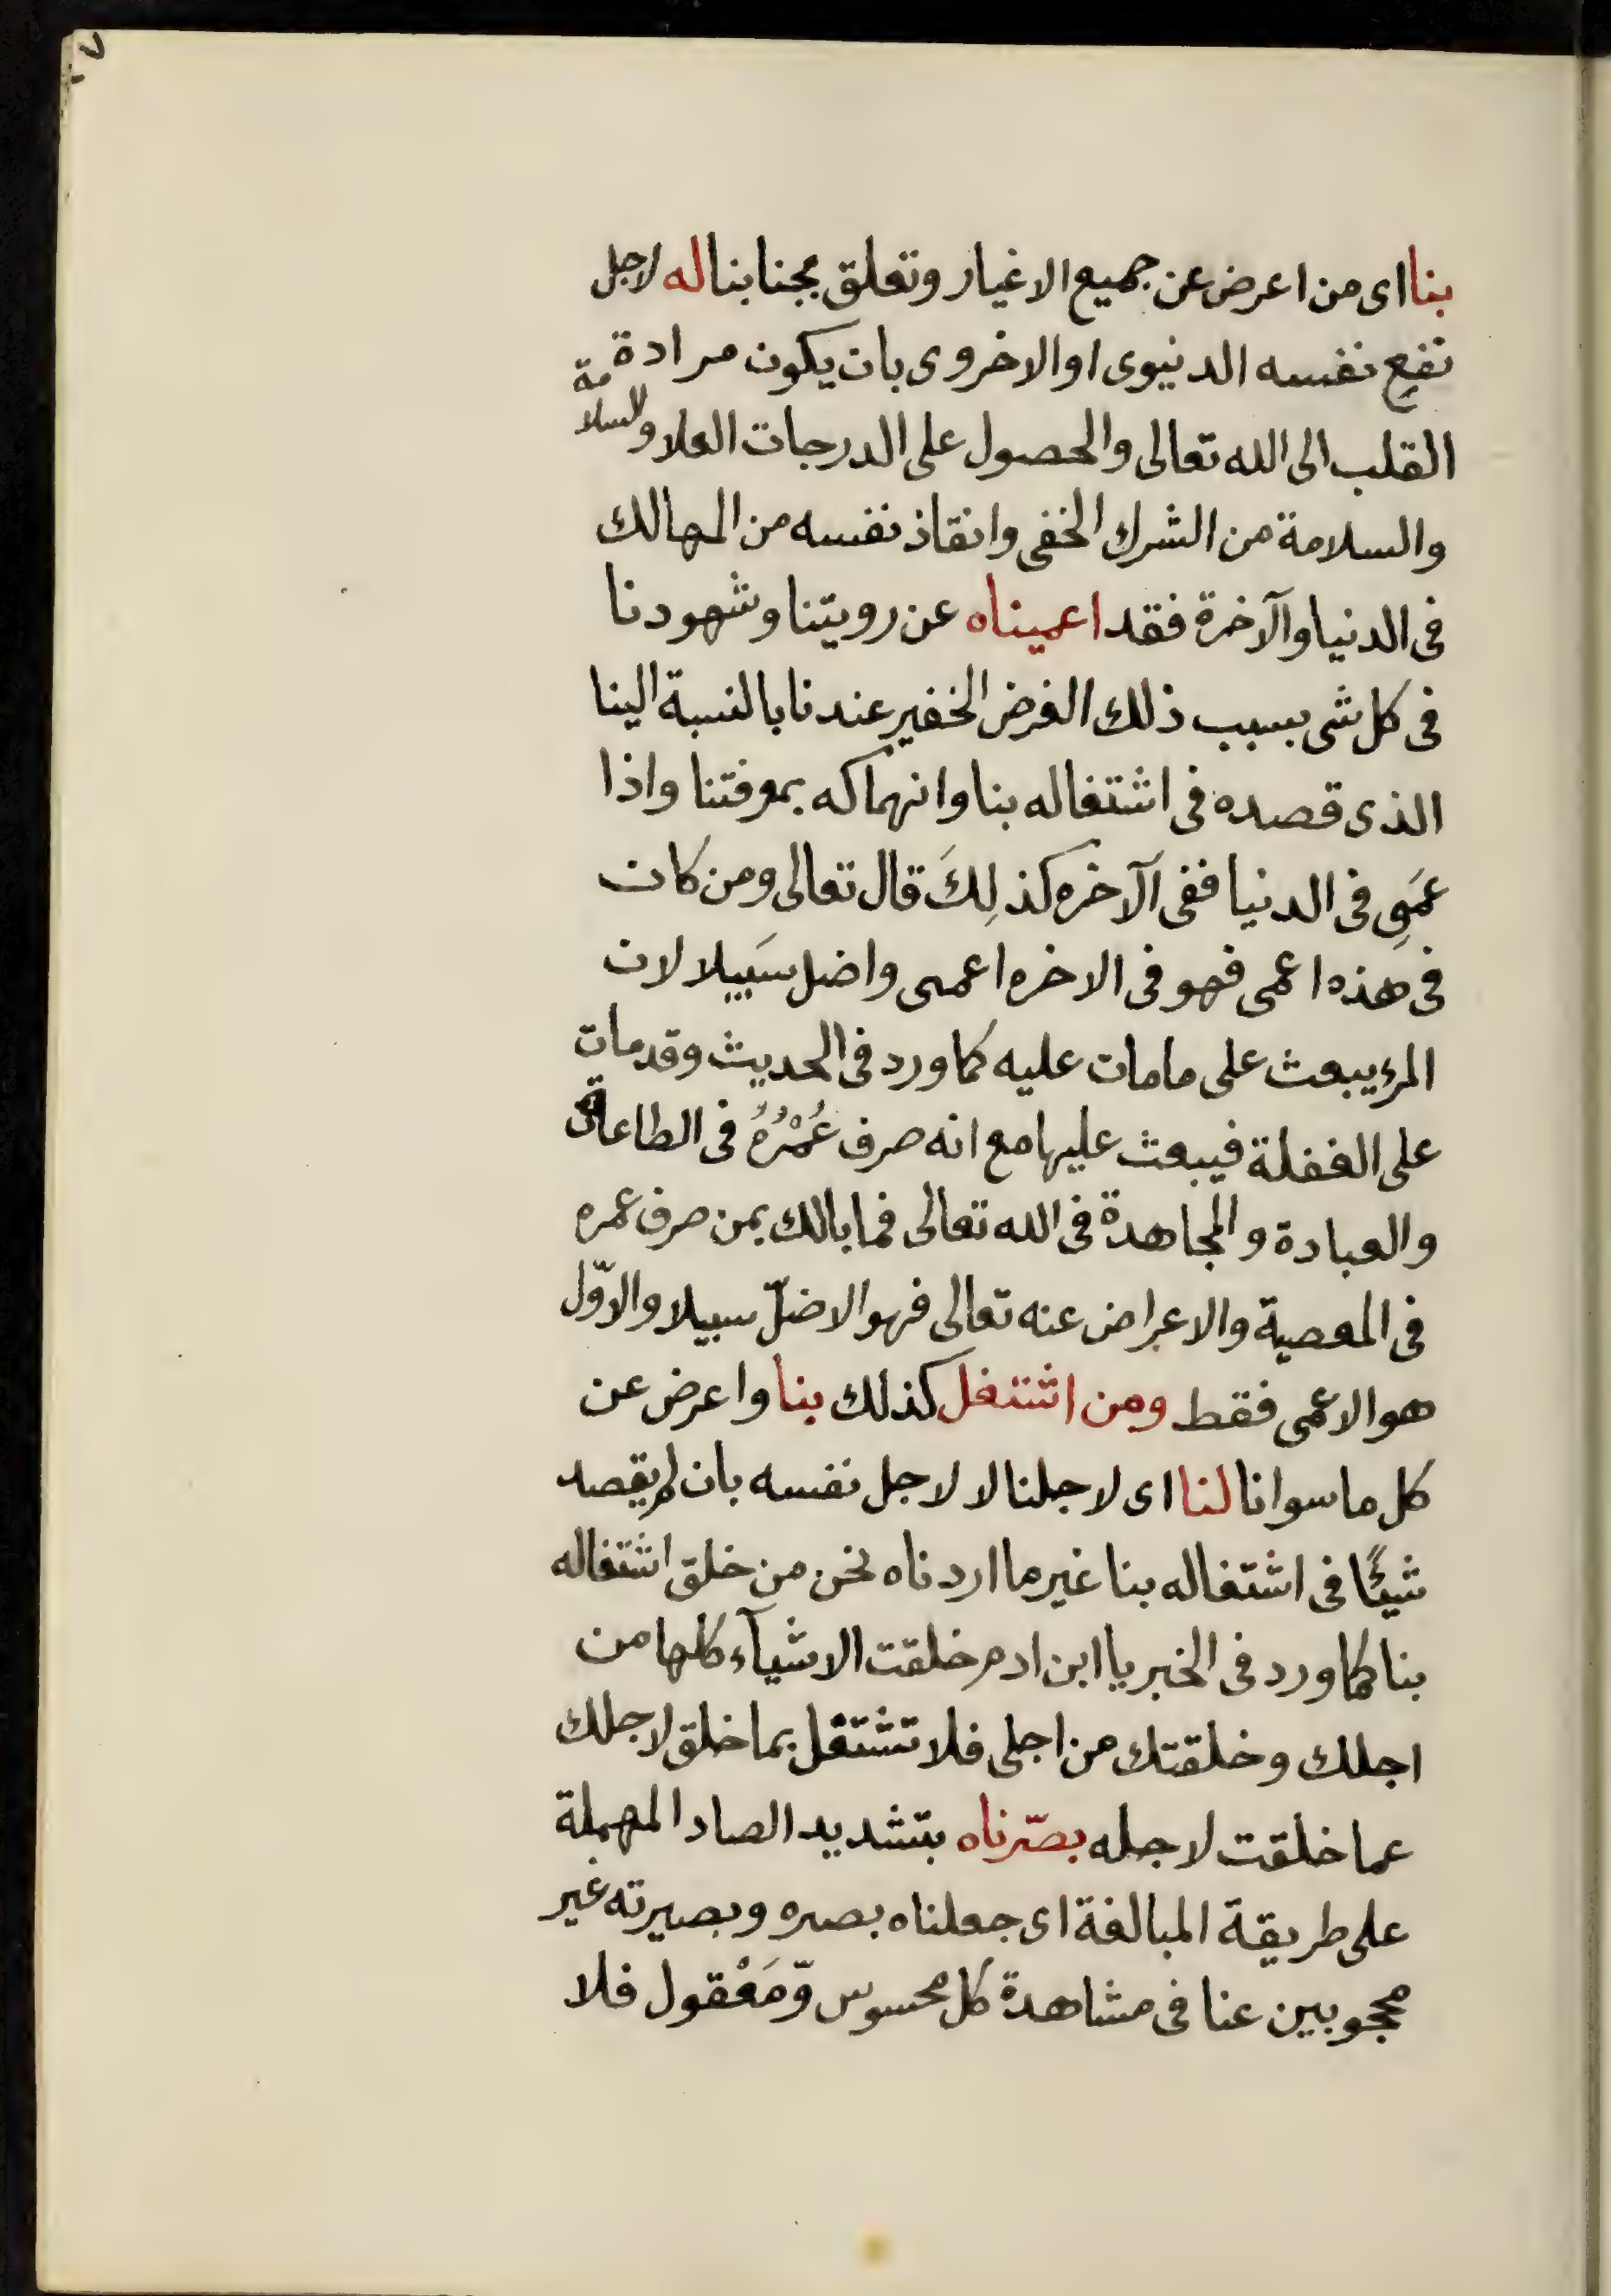 بنا اى من اعرض عن جميع الاغيار وتعلق بجنابنا له لاجل
نفعِ نفسه الدنيوى او الاخروى بان يكون مرادة
القلب الى الله تعالى والحصول على الدرجات العلا والسلامة
والسلامة من الشرك الخفى وانقاذ نفسه من المهالك
فى الدنيا والآخرة فقد اعميناه عن رويتنا وشهودنا
فى كل شى بسبب ذلك الغرض الخفير عندنا بالنسبة الينا
الذى قصده فى اشتغاله بنا وانهماكه بمعرفتنا واذا
عمَىِ فى الدنيا ففى الآخره كذلِكَ قال تعالى ومن كان
فى هذه اعمى فهو فى الاخره اعمى واضل سَبيلا لان
المرء يبعث على مامات عليه كما ورد فى الحديث وقد مات
على الغفلة فيبعث عليها مع انه صرف عُمْرُهُ فى الطاعات
والعبادة والمجاهدة فى الله تعالى فما بالك بمن صرف عمره
فى المعصية والاعراض عنه تعالى فهو الاضلّ سبيلا والاوّل
هو الاعمى فقط ومن اشتغل كذلك بنا واعرض عن
كل ما سوانا لنا اى لاجلنا لا لاجل نفسه بان لم يقصد
شيئًا فى اشتغاله بنا غير ما اردناه نحن من خلق اشتغاله
بنا كما ورد فى الخبر يا ابن ادم خلقت الاشيآء كلها من
اجلك وخلقتك من اجلى فلا تشتغل بما خلق لاجلك
عما خلقت لاجله بصّرناه بتشديد الصاد المهملة
على طريقة المبالغة اى جعلناه بصره وبصيرته غير
محجوبين عنا فى مشاهدة كل محسوس وّمَعْقول فلا